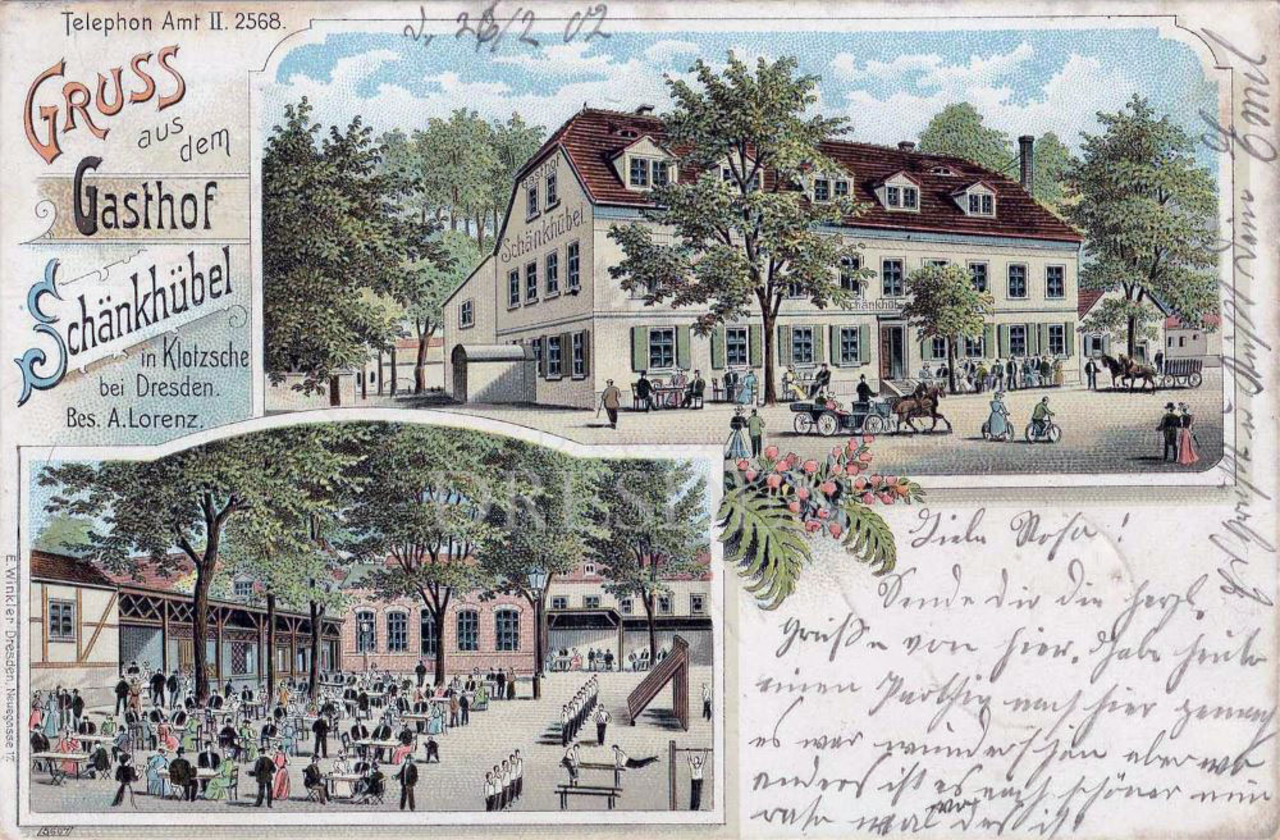 Telephon Amt II. 2568.
d. 26/2 02
GRUSS
aus
dem
Gasthof
Schänkhübel
in Klotzsche
bei Dresden.
Bes. A. Lorenz.
Gasthof
Schänkhübel
Schänkhübel
DRESDEN
E. Winkler Dresden, Neuegasse 12.
Liebe Rosa!
Sende dir die herzl.
Grüße von hier. Habe heute
einen Parthie nach hier gemacht
es war wunderschön aber wo
anders ist es noch schöner nun
rate mal wo das ist